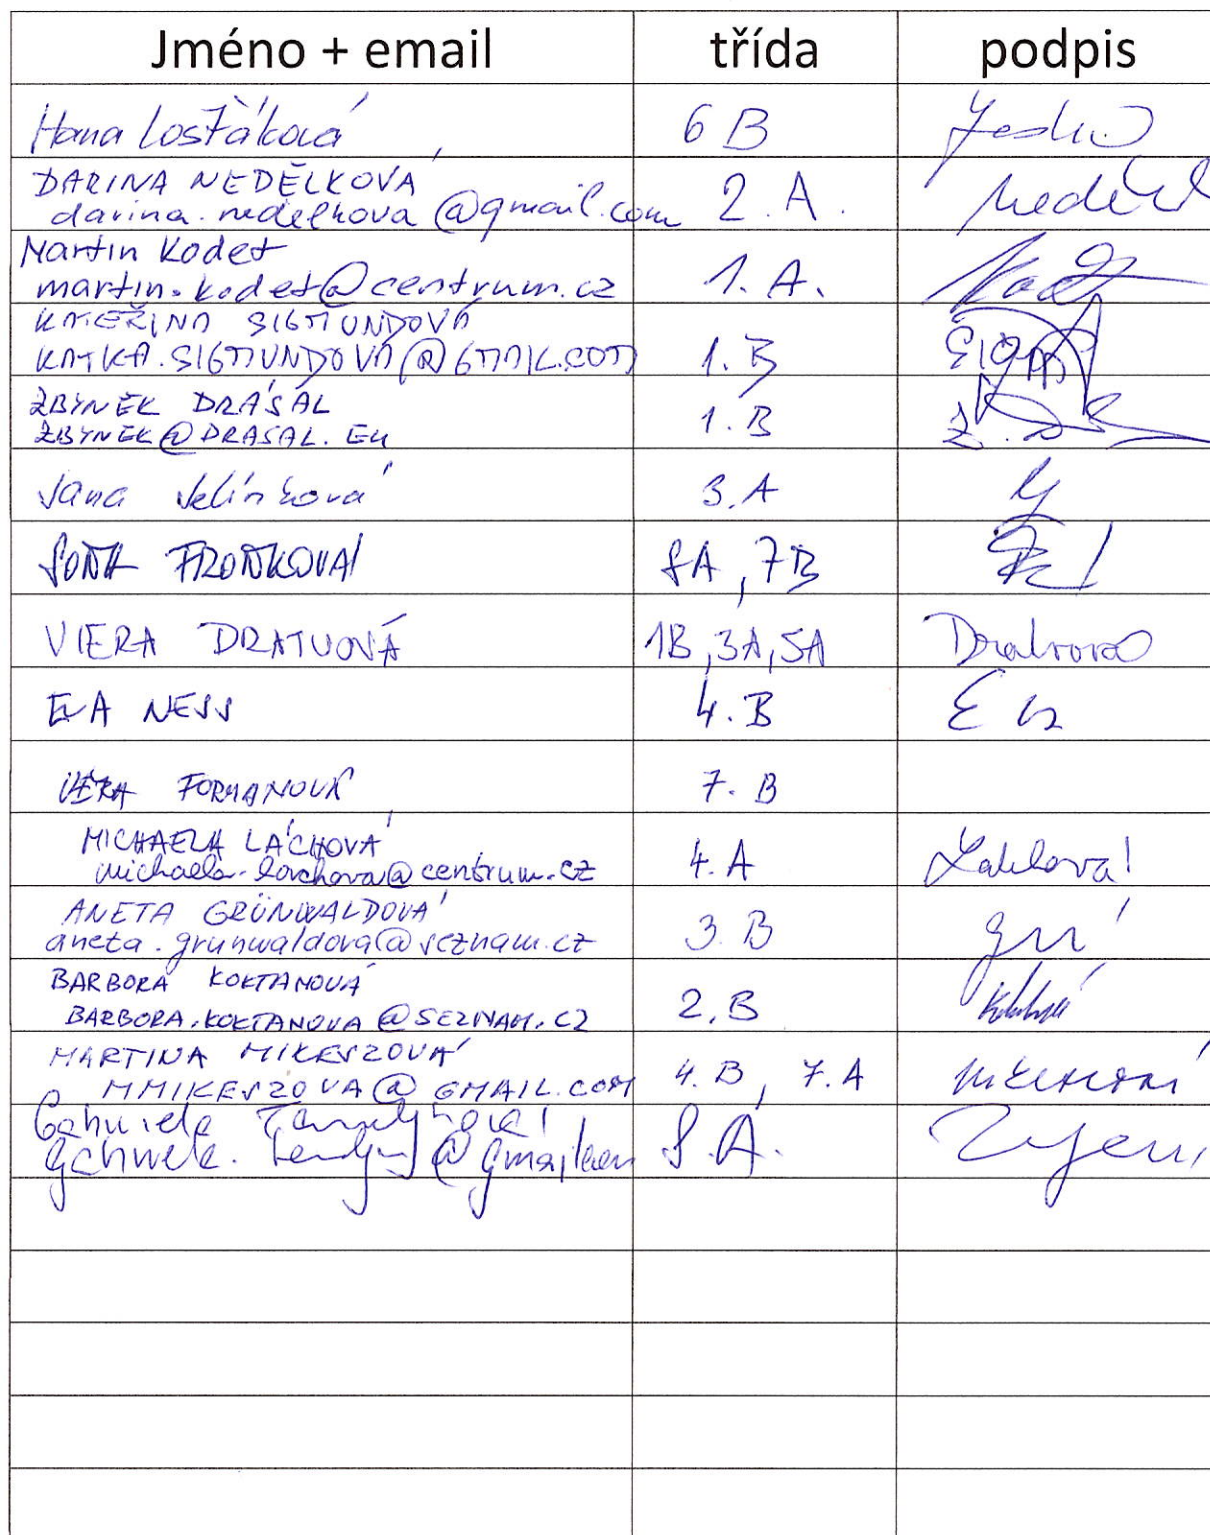 Jméno + email třída podpis
Hana Lošťáková 6 B
DARINA NEDĚLKOVÁ
darina.nedelkova@gmail.com 2. A.
Martin Kodet
martin.kodet@centrum.cz 1. A.
KATEŘINA SIGMUNDOVÁ
KATKA.SIGMUNDOVA@GMAIL.COM 1. B
ZBYNEK DRÁŠAL
ZBYNEK@DRASAL.EU 1. B
Jana Jelínková 3. A
SOŇA FROŇKOVÁ 8A, 7B
VIERA DRATVOVÁ 1B, 3A, 5A Dratvová
EVA NESS 4. B
VĚRA FORMANOVÁ 7. B
MICHAELA LÁCHOVÁ
michaela.lachova@centrum.cz 4. A
ANETA GRÜNWALDOVÁ
aneta.grunwaldova@seznam.cz 3. B
BARBORA KOKTANOVÁ
BARBORA.KOKTANOVA@SEZNAM.CZ 2. B
MARTINA MIKESZOVÁ
MMIKESZOVA@GMAIL.COM 4. B, 7. A
Gabriela
8. A.